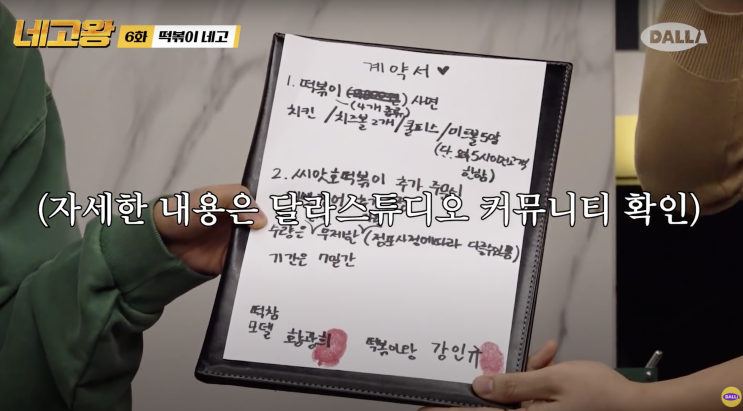 네고왕 6화 떡볶이 네고
DALLA
계약서 ♥
1. 떡볶이 ( ) 사면
(4개 종류)
치킨 / 치즈볼 2개 / 쿨피스 / 미트볼 5알
(단, 오후 5시 이전 고객 한함)
2. 씨앗호떡볶이 추가 주문시
(자세한 내용은 달라스튜디오 커뮤니티 확인)
수량은 무제한 (점포사정에따라 다를수있음)
기간은 7일간
떡참
모델 황광희 떡볶이랑 강인규
DALLA